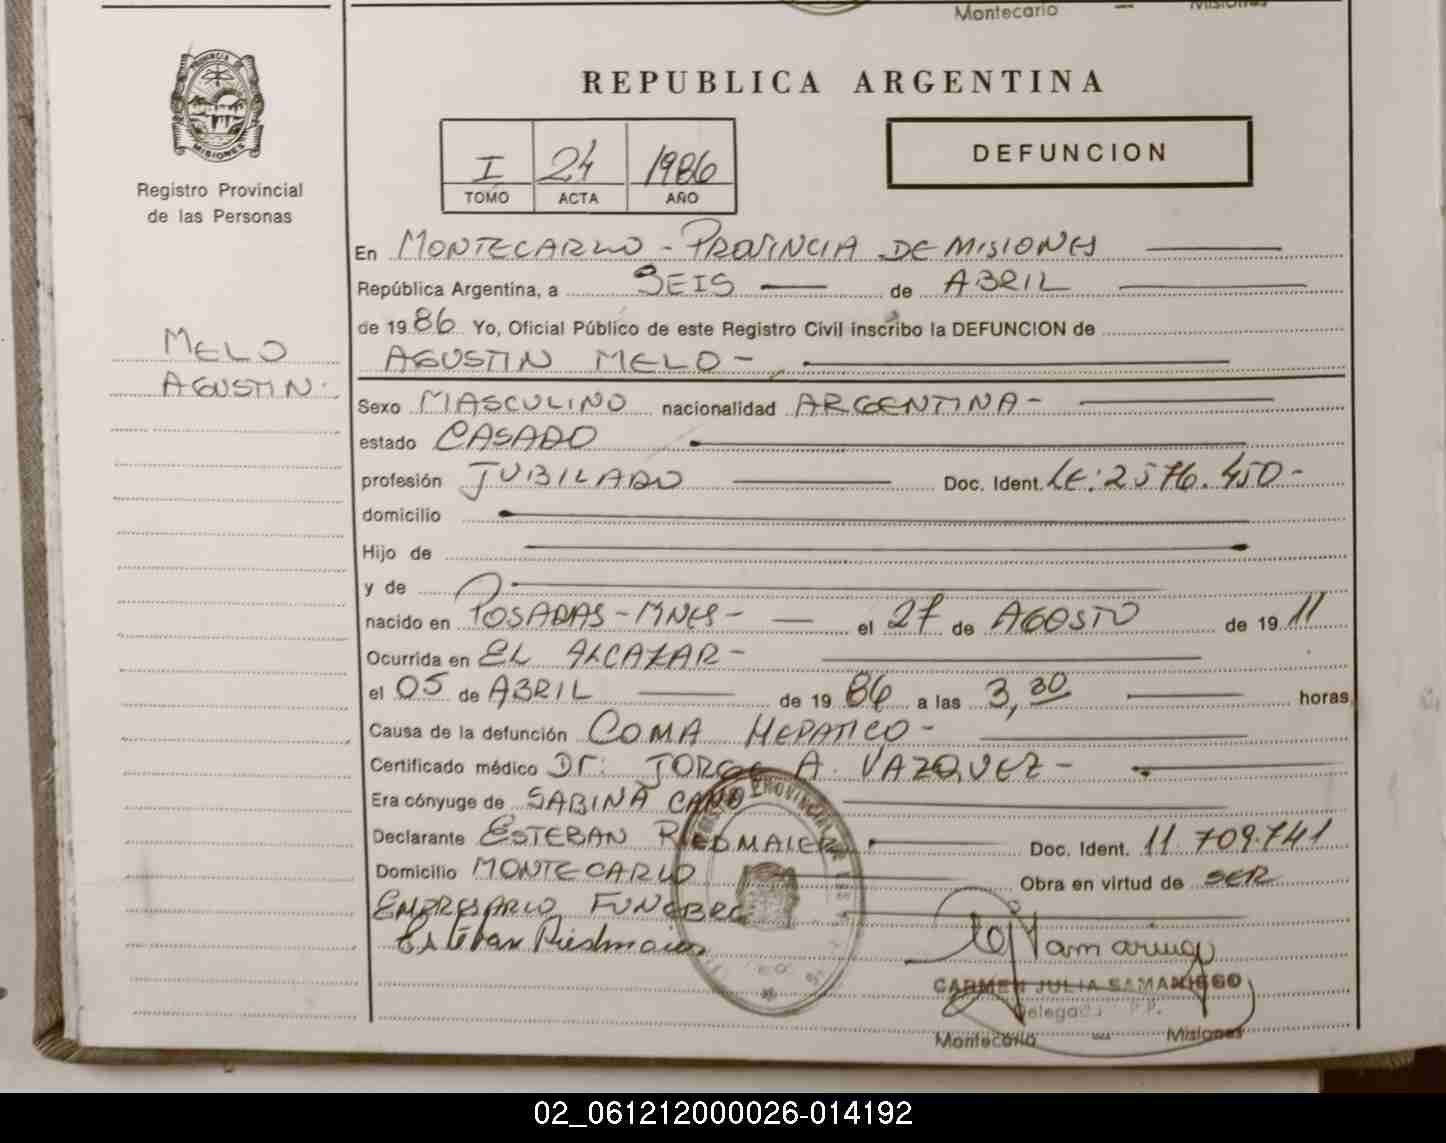 Montecarlo — Misiones
PROVINCIA DE
MISIONES
Registro Provincial
de las Personas
REPUBLICA ARGENTINA
I 24 1986
TOMO ACTA AÑO
DEFUNCION
En MONTECARLO - PROVINCIA DE MISIONES
República Argentina, a SEIS — de ABRIL
de 1986 Yo, Oficial Público de este Registro Civil inscribo la DEFUNCION de
AGUSTIN MELO -
MELO
AGUSTIN.
Sexo MASCULINO nacionalidad ARGENTINA -
estado CASADO
profesión JUBILADO Doc. Ident. LE: 2576.450 -
domicilio
Hijo de
y de
nacido en POSADAS - MNES - el 27 de AGOSTO de 1911
Ocurrida en EL ALCAZAR -
el 05 de ABRIL de 1986 a las 3,30 horas
Causa de la defunción COMA HEPATICO -
Certificado médico Dr: JORGE A. VAZQUEZ -
Era cónyuge de SABINA CANO
Declarante ESTEBAN RIEDMAIER Doc. Ident. 11.709.741
Domicilio MONTECARLO Obra en virtud de SER
EMPRESARIO FUNEBRE
Esteban Riedmaier
CARMEN JULIA SAMANIEGO
Delegada P.P.
Montecarlo — Misiones
02_061212000026-014192